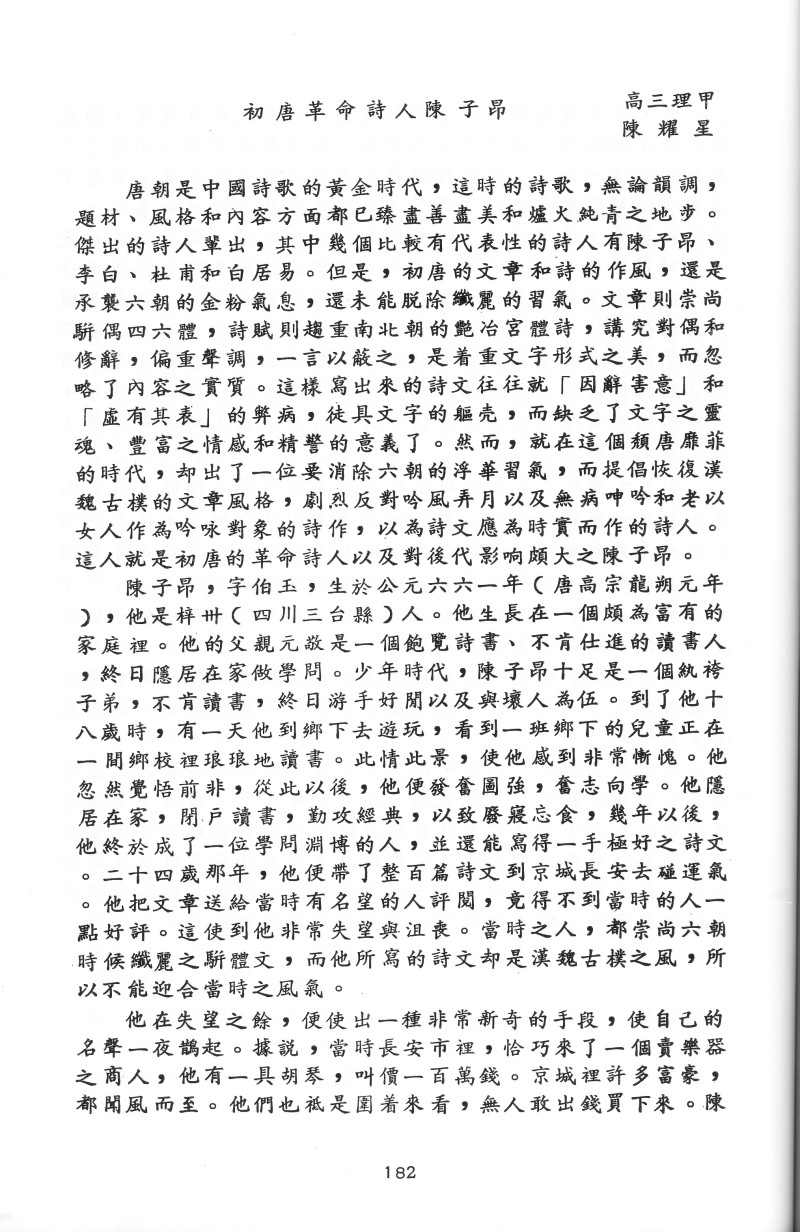 初唐革命詩人陳子昂
高三理甲
陳耀星
唐朝是中國詩歌的黃金時代，這時的詩歌，無論韻調，
題材、風格和內容方面都已臻盡善盡美和爐火純青之地步。
傑出的詩人輩出，其中幾個比較有代表性的詩人有陳子昂、
李白、杜甫和白居易。但是，初唐的文章和詩的作風，還是
承襲六朝的金粉氣息，還未能脫除纖麗的習氣。文章則崇尚
駢偶四六體，詩賦則趨重南北朝的艷冶宮體詩，講究對偶和
修辭，偏重聲調，一言以蔽之，是着重文字形式之美，而忽
略了內容之實質。這樣寫出來的詩文往往就「因辭害意」和
「虛有其表」的弊病，徒具文字的軀壳，而缺乏了文字之靈
魂、豐富之情感和精警的意義了。然而，就在這個頹唐靡菲
的時代，却出了一位要消除六朝的浮華習氣，而提倡恢復漢
魏古樸的文章風格，劇烈反對吟風弄月以及無病呻吟和老以
女人作為吟咏對象的詩作，以為詩文應為時實而作的詩人。
這人就是初唐的革命詩人以及對後代影响頗大之陳子昂。
陳子昂，字伯玉，生於公元六六一年（唐高宗龍朔元年
），他是梓卅（四川三台縣）人。他生長在一個頗為富有的
家庭裡。他的父親元敬是一個飽覽詩書、不肯仕進的讀書人
，終日隱居在家做學問。少年時代，陳子昂十足是一個紈袴
子弟，不肯讀書，終日游手好閒以及與壞人為伍。到了他十
八歲時，有一天他到鄉下去遊玩，看到一班鄉下的兒童正在
一間鄉校裡琅琅地讀書。此情此景，使他感到非常慚愧。他
忽然覺悟前非，從此以後，他便發奮圖強，奮志向學。他隱
居在家，閉戶讀書，勤攻經典，以致廢寢忘食，幾年以後，
他終於成了一位學問淵博的人，並還能寫得一手極好之詩文
。二十四歲那年，他便帶了整百篇詩文到京城長安去碰運氣
。他把文章送給當時有名望的人評閱，竟得不到當時的人一
點好評。這使到他非常失望與沮喪。當時之人，都崇尚六朝
時候纖麗之駢體文，而他所寫的詩文却是漢魏古樸之風，所
以不能迎合當時之風氣。
他在失望之餘，便使出一種非常新奇的手段，使自己的
名聲一夜鵲起。據說，當時長安市裡，恰巧來了一個賣樂器
之商人，他有一具胡琴，叫價一百萬錢。京城裡許多富豪，
都聞風而至。他們也祇是圍着來看，無人敢出錢買下來。陳
182